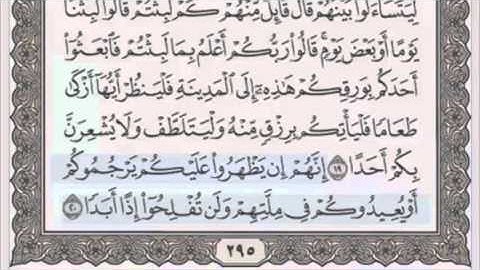 لِيَتَسَآءَلُوا۟ بَيْنَهُمْ قَالَ قَآئِلٌ مِّنْهُمْ كَمْ لَبِثْتُمْ قَالُوا۟ لَبِثْنَا
يَوْمًا أَوْ بَعْضَ يَوْمٍ قَالُوا۟ رَبُّكُمْ أَعْلَمُ بِمَا لَبِثْتُمْ فَٱبْعَثُوٓا۟
أَحَدَكُم بِوَرِقِكُمْ هَٰذِهِۦٓ إِلَى ٱلْمَدِينَةِ فَلْيَنظُرْ أَيُّهَآ أَزْكَىٰ
طَعَامًا فَلْيَأْتِكُم بِرِزْقٍ مِّنْهُ وَلْيَتَلَطَّفْ وَلَا يُشْعِرَنَّ
بِكُمْ أَحَدًا ١٩ إِنَّهُمْ إِن يَظْهَرُوا۟ عَلَيْكُمْ يَرْجُمُوكُمْ
أَوْ يُعِيدُوكُمْ فِى مِلَّتِهِمْ وَلَن تُفْلِحُوٓا۟ إِذًا أَبَدًا ٢٠
٢٩٥